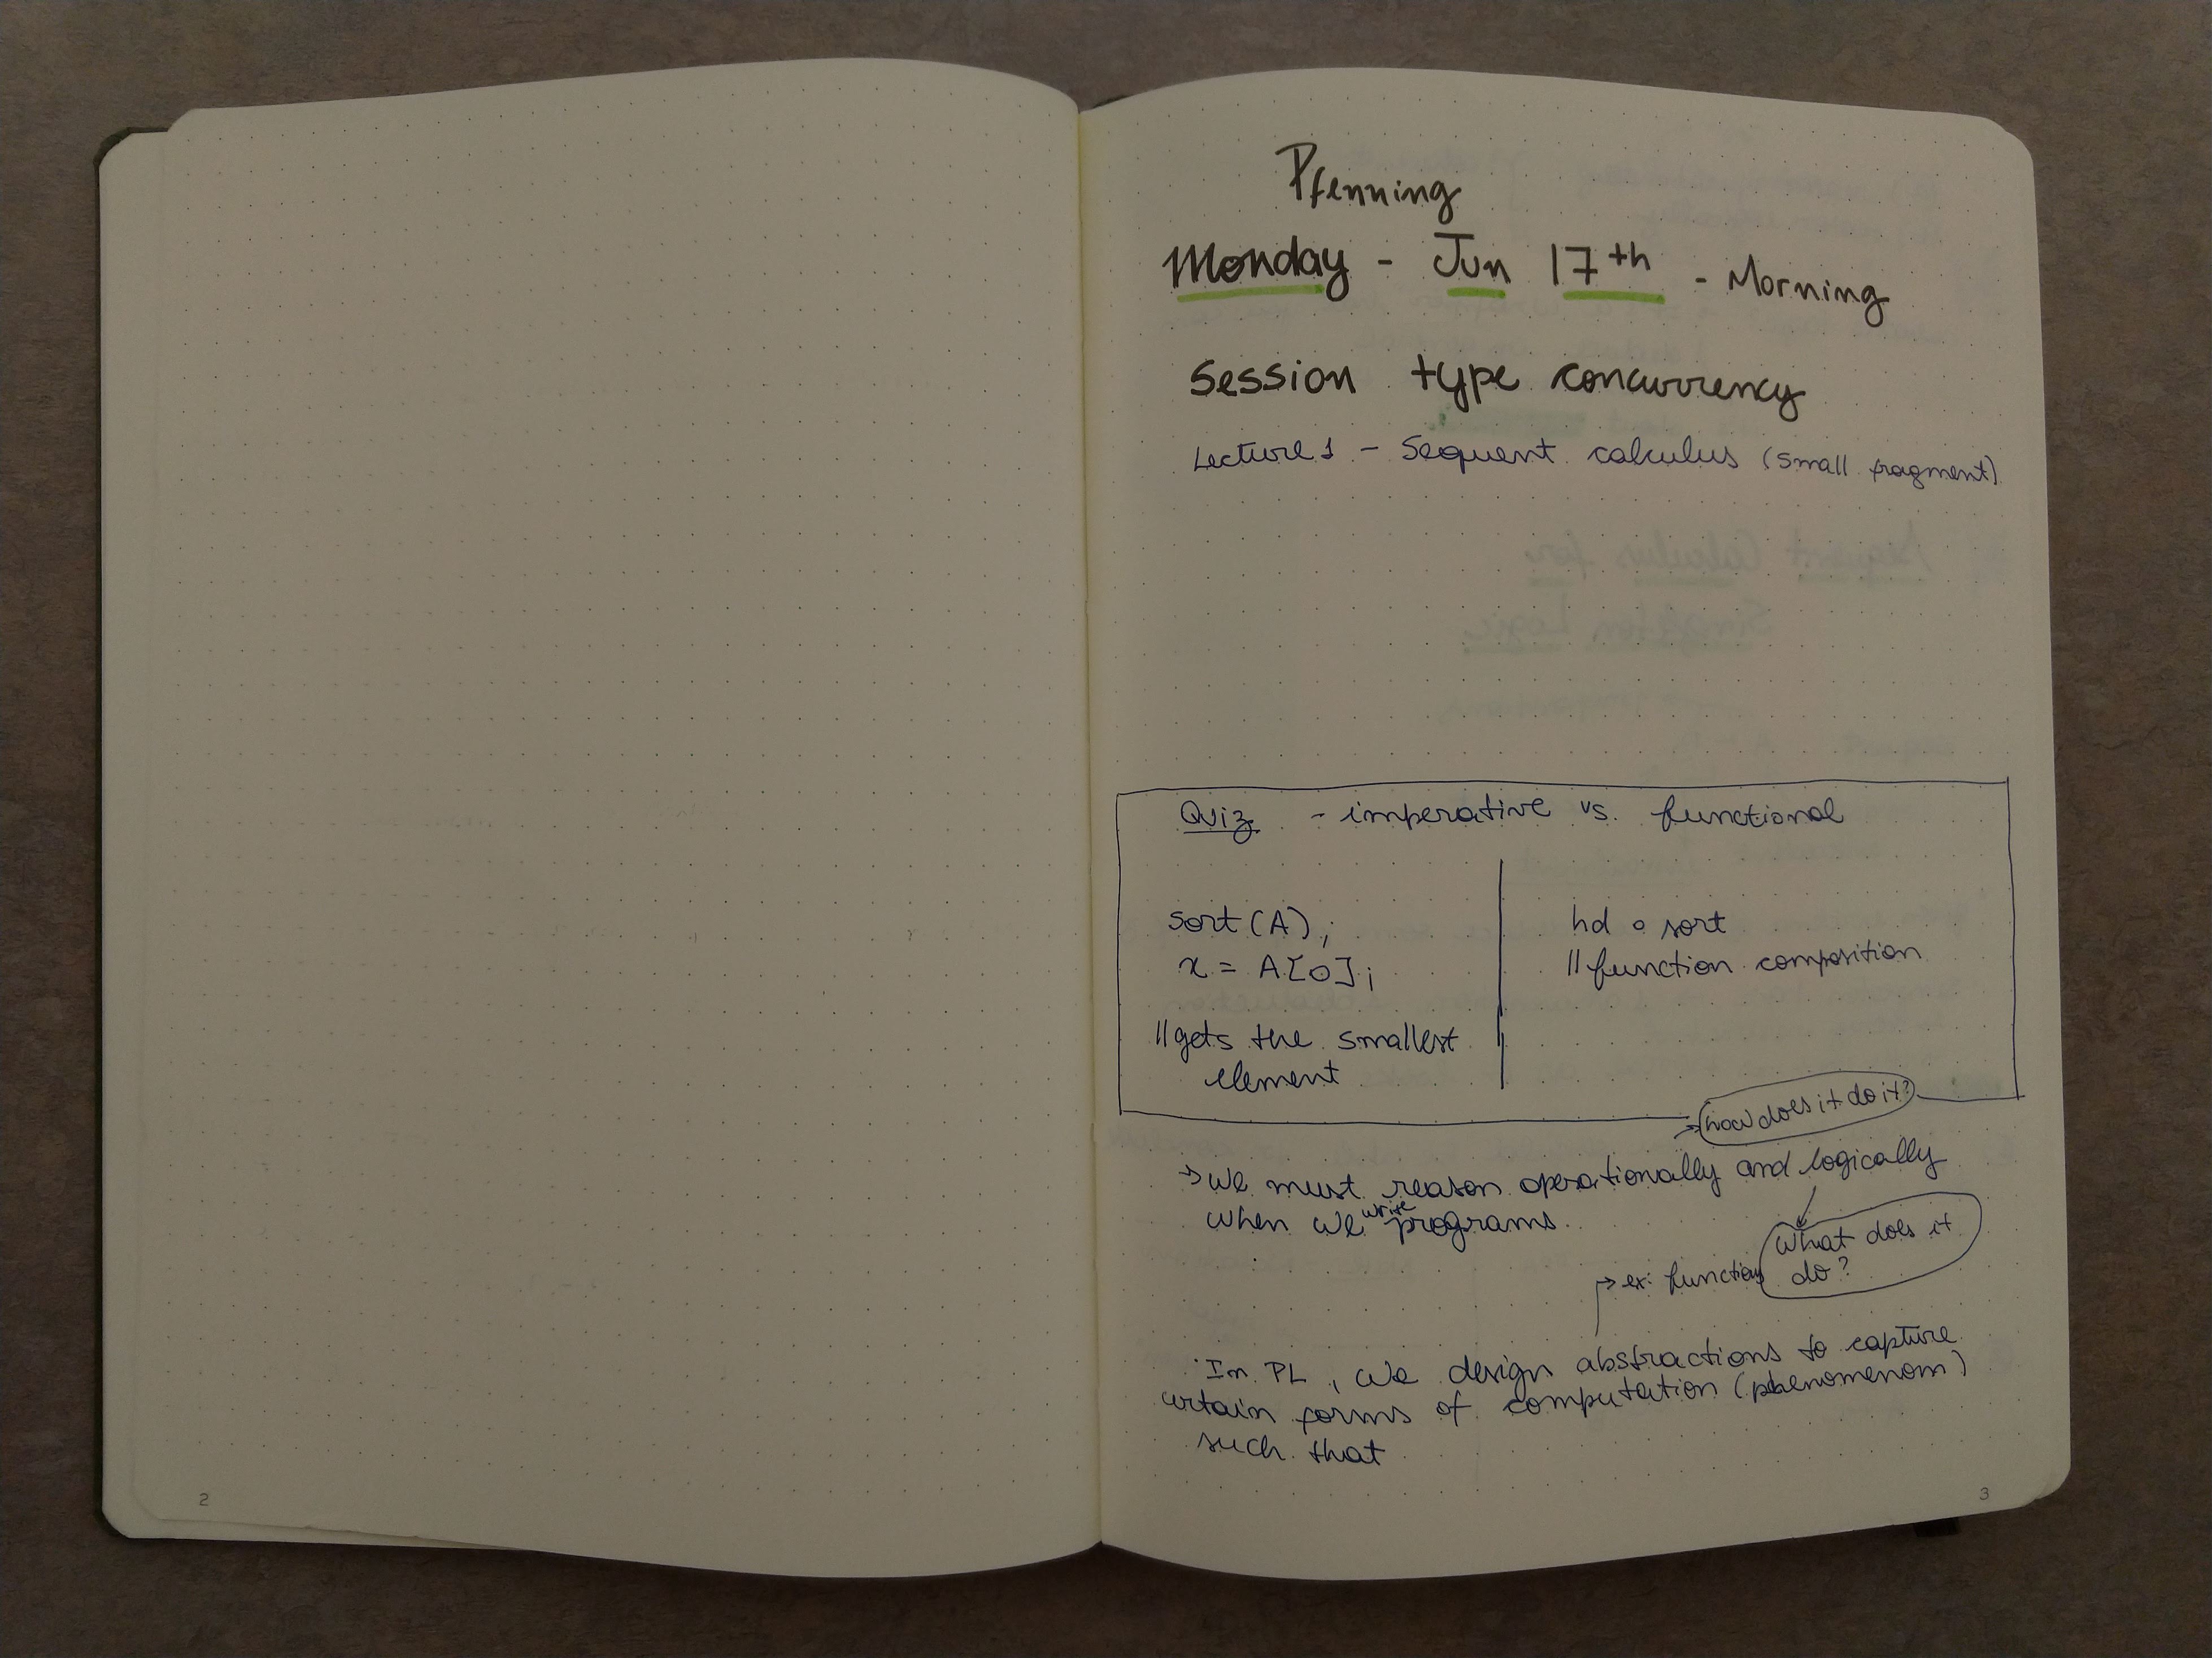 Pfenning
Monday - Jun 17th - Morning
Session type concurrency
Lecture 1 - Sequent calculus (small fragment)
Quiz - imperative vs. functional
sort(A);
x = A[0];
//gets the smallest
element
hd o sort
//function composition
how does it do it?
→ we must reason operationally and logically
when we write programs.
What does it
do?
→ ex: functions
In PL, we design abstractions to capture
certain forms of computation (phenomenom)
such that
2
3